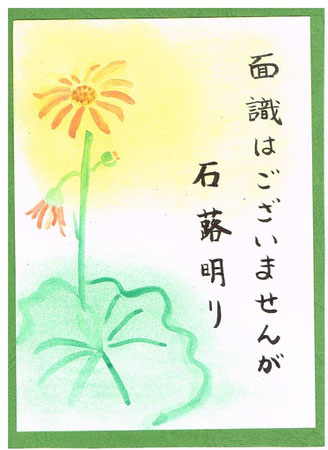 面識はございませんが
石蕗明り